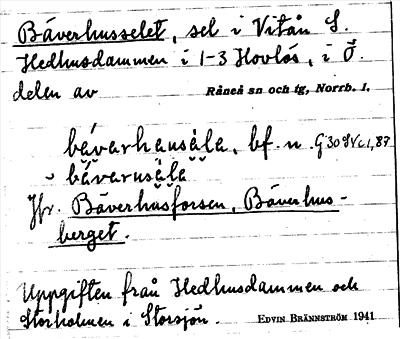 Bäverhusselet, sel i Vitån S.
Hedhusdammen i 1-3 Hovlös, i Ö.
delen av Råneå sn och tg, Norrb. l.
bävarhausäla, bf. n.
bävarusäla
Jfr. Bäverhusforsen, Bäverhus-
berget.
Uppgiften från Hedhusdammen och
Storholmen i Storsjön. EDVIN BRÄNNSTRÖM 1941